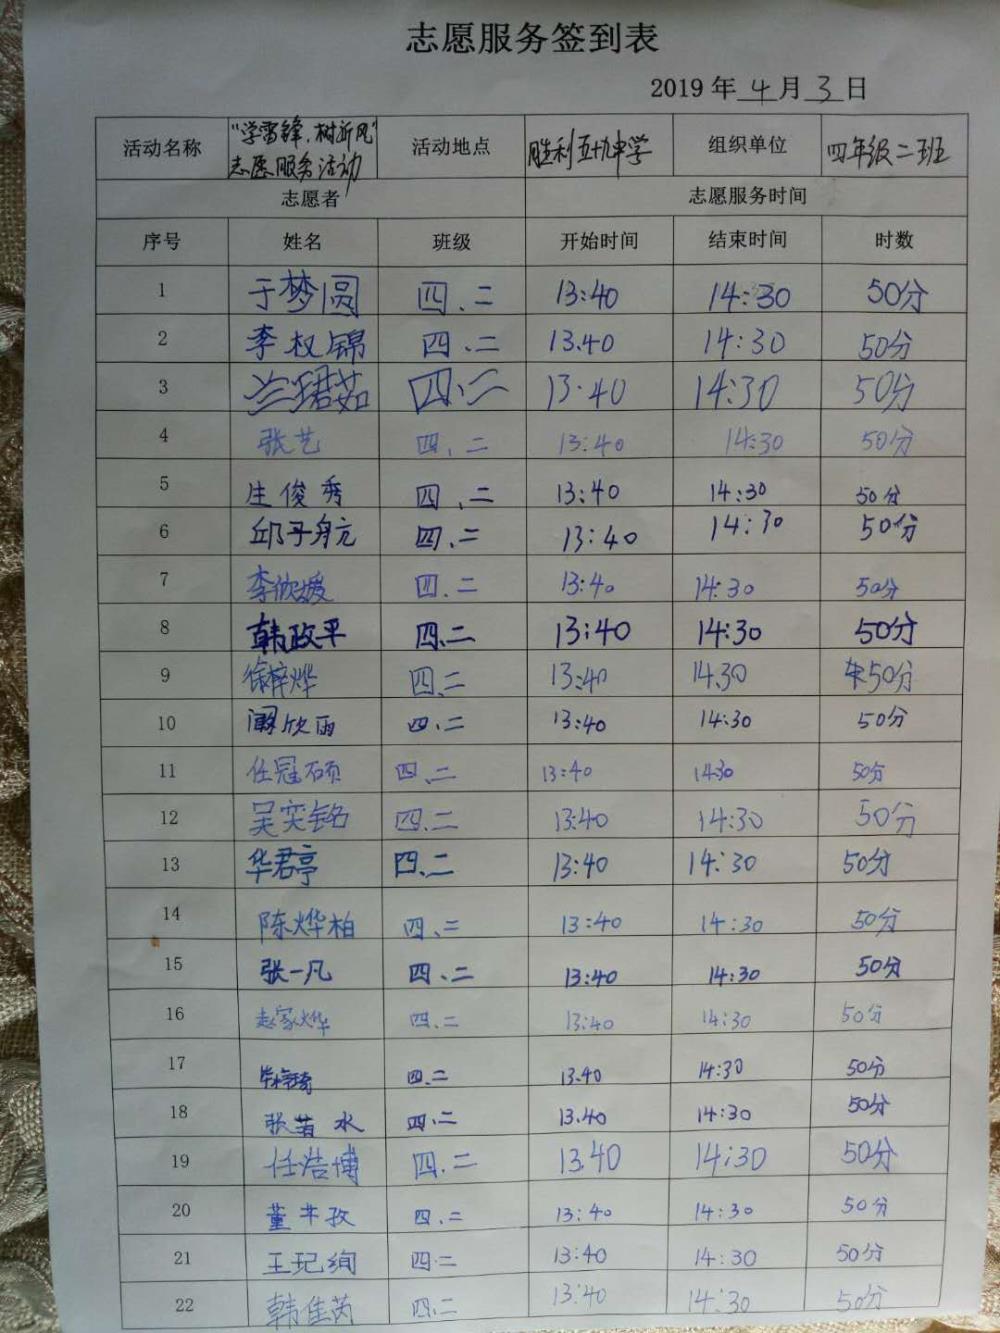 志愿服务签到表
2019 年 4 月 3 日
活动名称 "学雷锋,树新风"志愿服务活动 活动地点 胜利五十九中学 组织单位 四年级二班
志愿者 志愿服务时间
序号 姓名 班级 开始时间 结束时间 时数
1 于梦圆 四、二 13:40 14:30 50分
2 李权锦 四、二 13.40 14:30 50分
3 兰珺茹 四、二 13·40 14:30 50分
4 张艺 四、二 13:40 14:30 50分
5 庄俊秀 四、二 13:40 14:30 50分
6 邱子航 四、二 13:40 14:30 50分
7 李欣媛 四、二 13:40 14:30 50分
8 韩政平 四、二 13:40 14:30 50分
9 徐梓烨 四、二 13:40 14.30 50分
10 欣雨 四、二 13:40 14:30 50分
11 任冠硕 四、二 13:40 1430 50分
12 吴奕铭 四、二 13:40 14:30 50分
13 华君亭 四、二 13:40 14:30 50分
14 陈烨柏 四、二 13:40 14:30 50分
15 张一凡 四、二 13:40 14:30 50分
16 赵家烨 四、二 13:40 14:30 50分
17 四、二 13.40 14:30 50分
18 张若水 四、二 13.40 14:30 50分
19 任浩博 四、二 13.40 14:30 50分
20 董芊孜 四、二 13:40 14:30 50分
21 王玘绚 四、二 13:40 14:30 50分
22 韩佳芮 四、二 13:40 14:30 50分